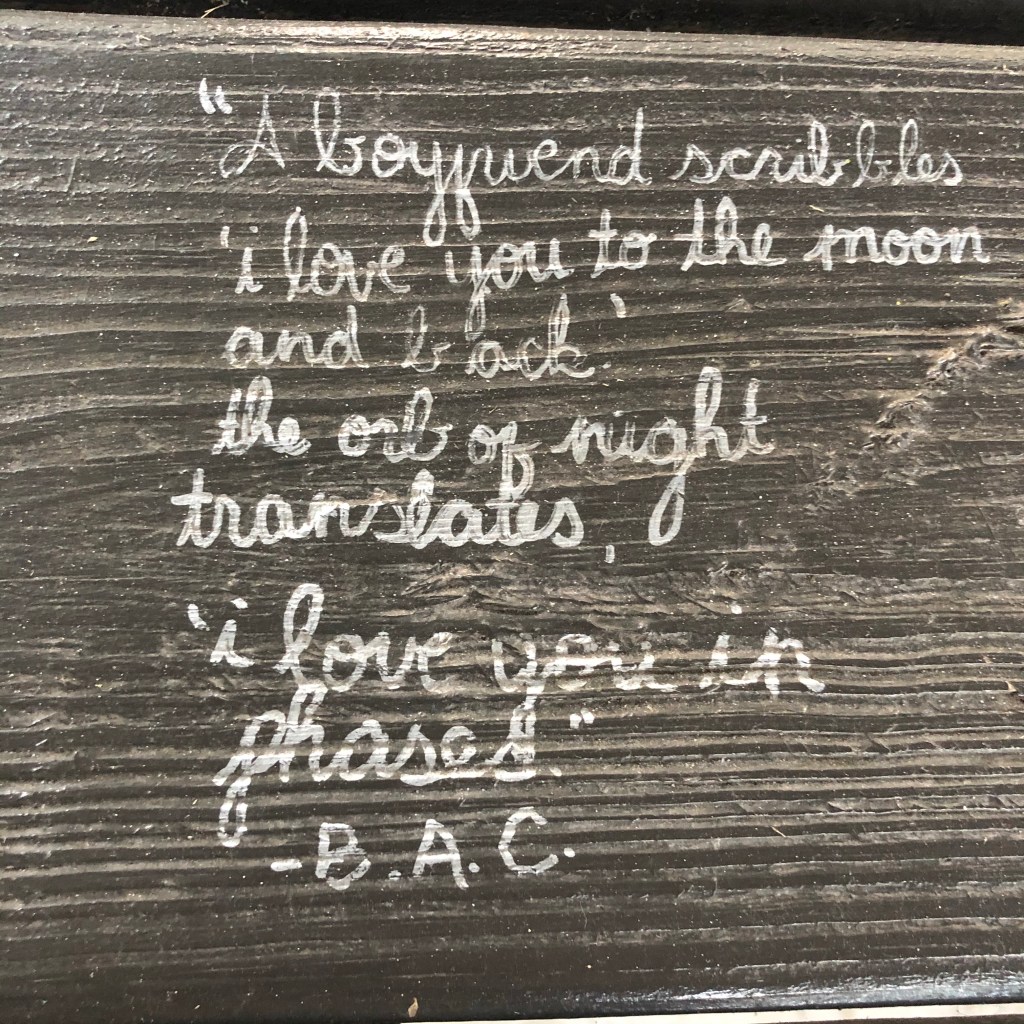 "A boyfriend scribbles
'i love you to the moon
and back.'
the orb of night
translates,
'i love you in
phases."
-B.A.C.